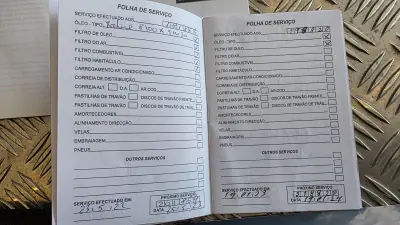 FOLHA DE SERVIÇO
SERVIÇO EFECTUADO AOS
ÓLEO - TIPO
FILTRO DE ÓLEO
FILTRO DO AR
FILTRO COMBUSTÍVEL
FILTRO HABITÁCULO
CARREGAMENTO AR CONDICIONADO
CORREIA DE DISTRIBUIÇÃO
CORREIA ALT D.A AR COND.
PASTILHAS DE TRAVÃO DISCOS DE TRAVÃO FRENTE
PASTILHAS DE TRAVÃO DISCOS DE TRAVÃO TRÁS
AMORTECEDORES
ALINHAMENTO DIRECÇÃO
VELAS
EMBRAIAGEM
PNEUS
OUTROS SERVIÇOS
SERVIÇO EFECTUADO EM
PRÓXIMO SERVIÇO
DATA
FOLHA DE SERVIÇO
SERVIÇO EFECTUADO AOS
ÓLEO - TIPO
FILTRO DE ÓLEO
FILTRO DO AR
FILTRO COMBUSTÍVEL
FILTRO HABITÁCULO
CARREGAMENTO AR CONDICIONADO
CORREIA DE DISTRIBUIÇÃO
CORREIA ALT D.A AR COND.
PASTILHAS DE TRAVÃO DISCOS DE TRAVÃO FRENTE
PASTILHAS DE TRAVÃO DISCOS DE TRAVÃO TRÁS
AMORTECEDORES
ALINHAMENTO DIRECÇÃO
VELAS
EMBRAIAGEM
PNEUS
OUTROS SERVIÇOS
SERVIÇO EFECTUADO EM
19.01.23
PRÓXIMO SERVIÇO
DATA 19.01.24